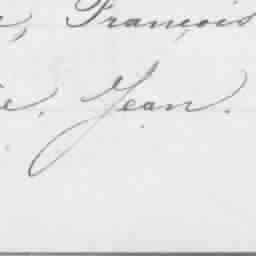 , François
e. Jean.